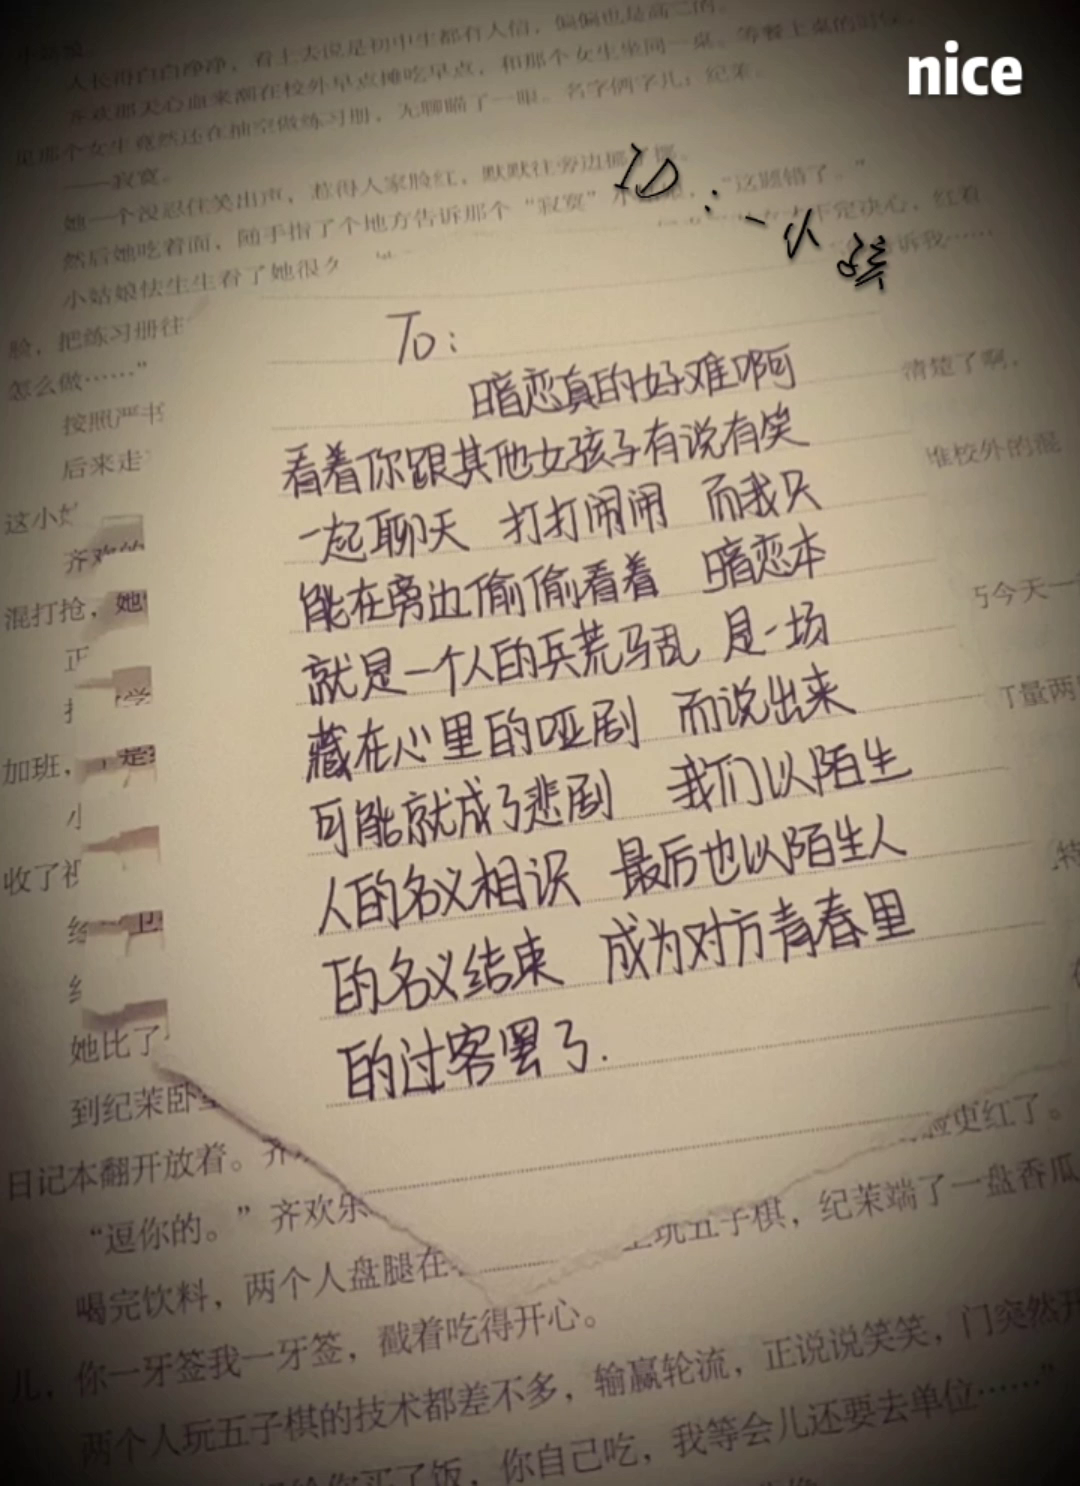 nice
人长得白白净净，看上去说是初中生都有人信，偏偏也是高二的。
齐欢那天心血来潮在校外早点摊吃早点，和那个女生坐同一桌。等餐上桌的时候，
见那个女生竟然还在抽空做练习册，无聊瞄了一眼。名字俩字儿：纪茉。
——寂寞。
她一个没忍住笑出声，惹得人家脸红，默默往旁边挪了挪。
ID：一小孩
然后她吃着面，随手指了个地方告诉那个“寂寞”小
“这题错了。”
小姑娘怯生生看了她很久
下定决心，红着
脸，把练习册往
诉我……
怎么做……”
To：
暗恋真的好难啊
看着你跟其他女孩子有说有笑
一起聊天 打打闹闹 而我只
能在旁边偷偷看着 暗恋本
就是一个人的兵荒马乱 是一场
藏在心里的哑剧 而说出来
可能就成了悲剧 我们以陌生
人的名义相识 最后也以陌生人
的名义结束 成为对方青春里
的过客罢了.
按照严书
清楚了啊，
后来走
校外的混
这小
混打抢，她
今天一
加班，
量两
收了
她比了
到纪茉卧
日记本翻开放着。齐
更红了。
“逗你的。”齐欢乐
喝完饮料，两个人盘腿在
玩五子棋，纪茉端了一盘香瓜
儿，你一牙签我一牙签，戳着吃得开心。
两个人玩五子棋的技术都差不多，输赢轮流，正说说笑笑，门突然
给你买了饭，你自己吃，我等会儿还要去单位……”